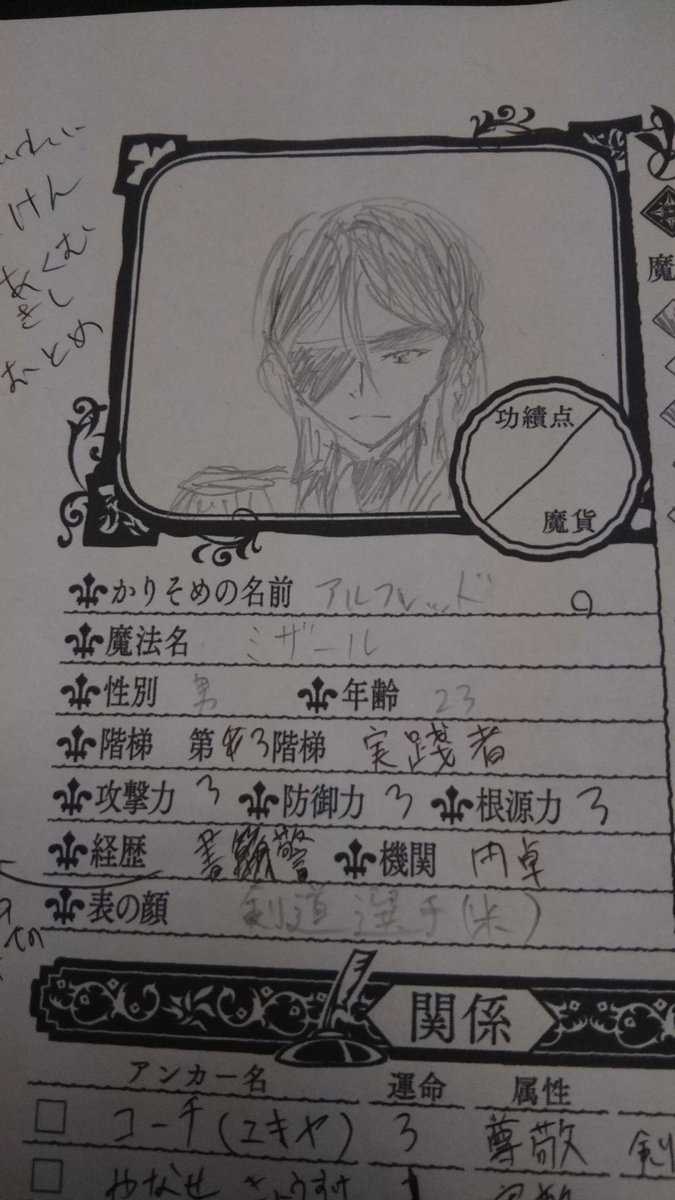 けん
あくむ
きし
おとめ
魔
功績点
魔貨
かりそめの名前 アルフレッド
魔法名 ミザール
性別 男 年齢 23
階梯 第3階梯 実践者
攻撃力 3 防御力 3 根源力 3
経歴 書籍警 機関 円卓
表の顔 剣道選手(米)
関係
アンカー名 運命 属性
コーチ(ユキヤ) 3 尊敬 剣